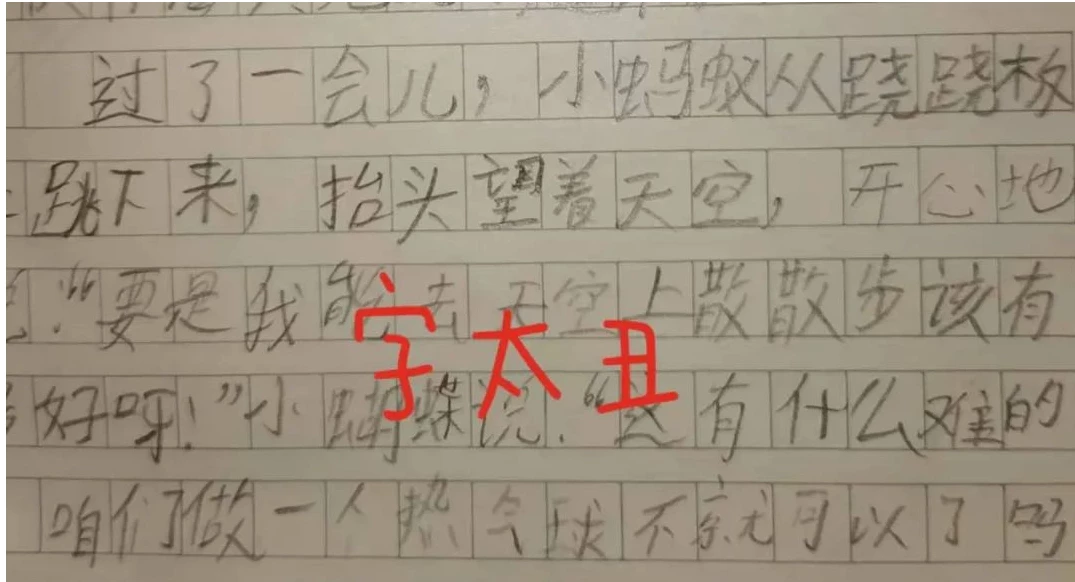 过了一会儿，小蚂蚁从跷跷板
跳下来，抬头望着天空，开心地
：“要是我能去天空上散散步该有
好呀！”小蝴蝶说：“这有什么难的
字太丑
咱们做一个热气球不就可以了吗